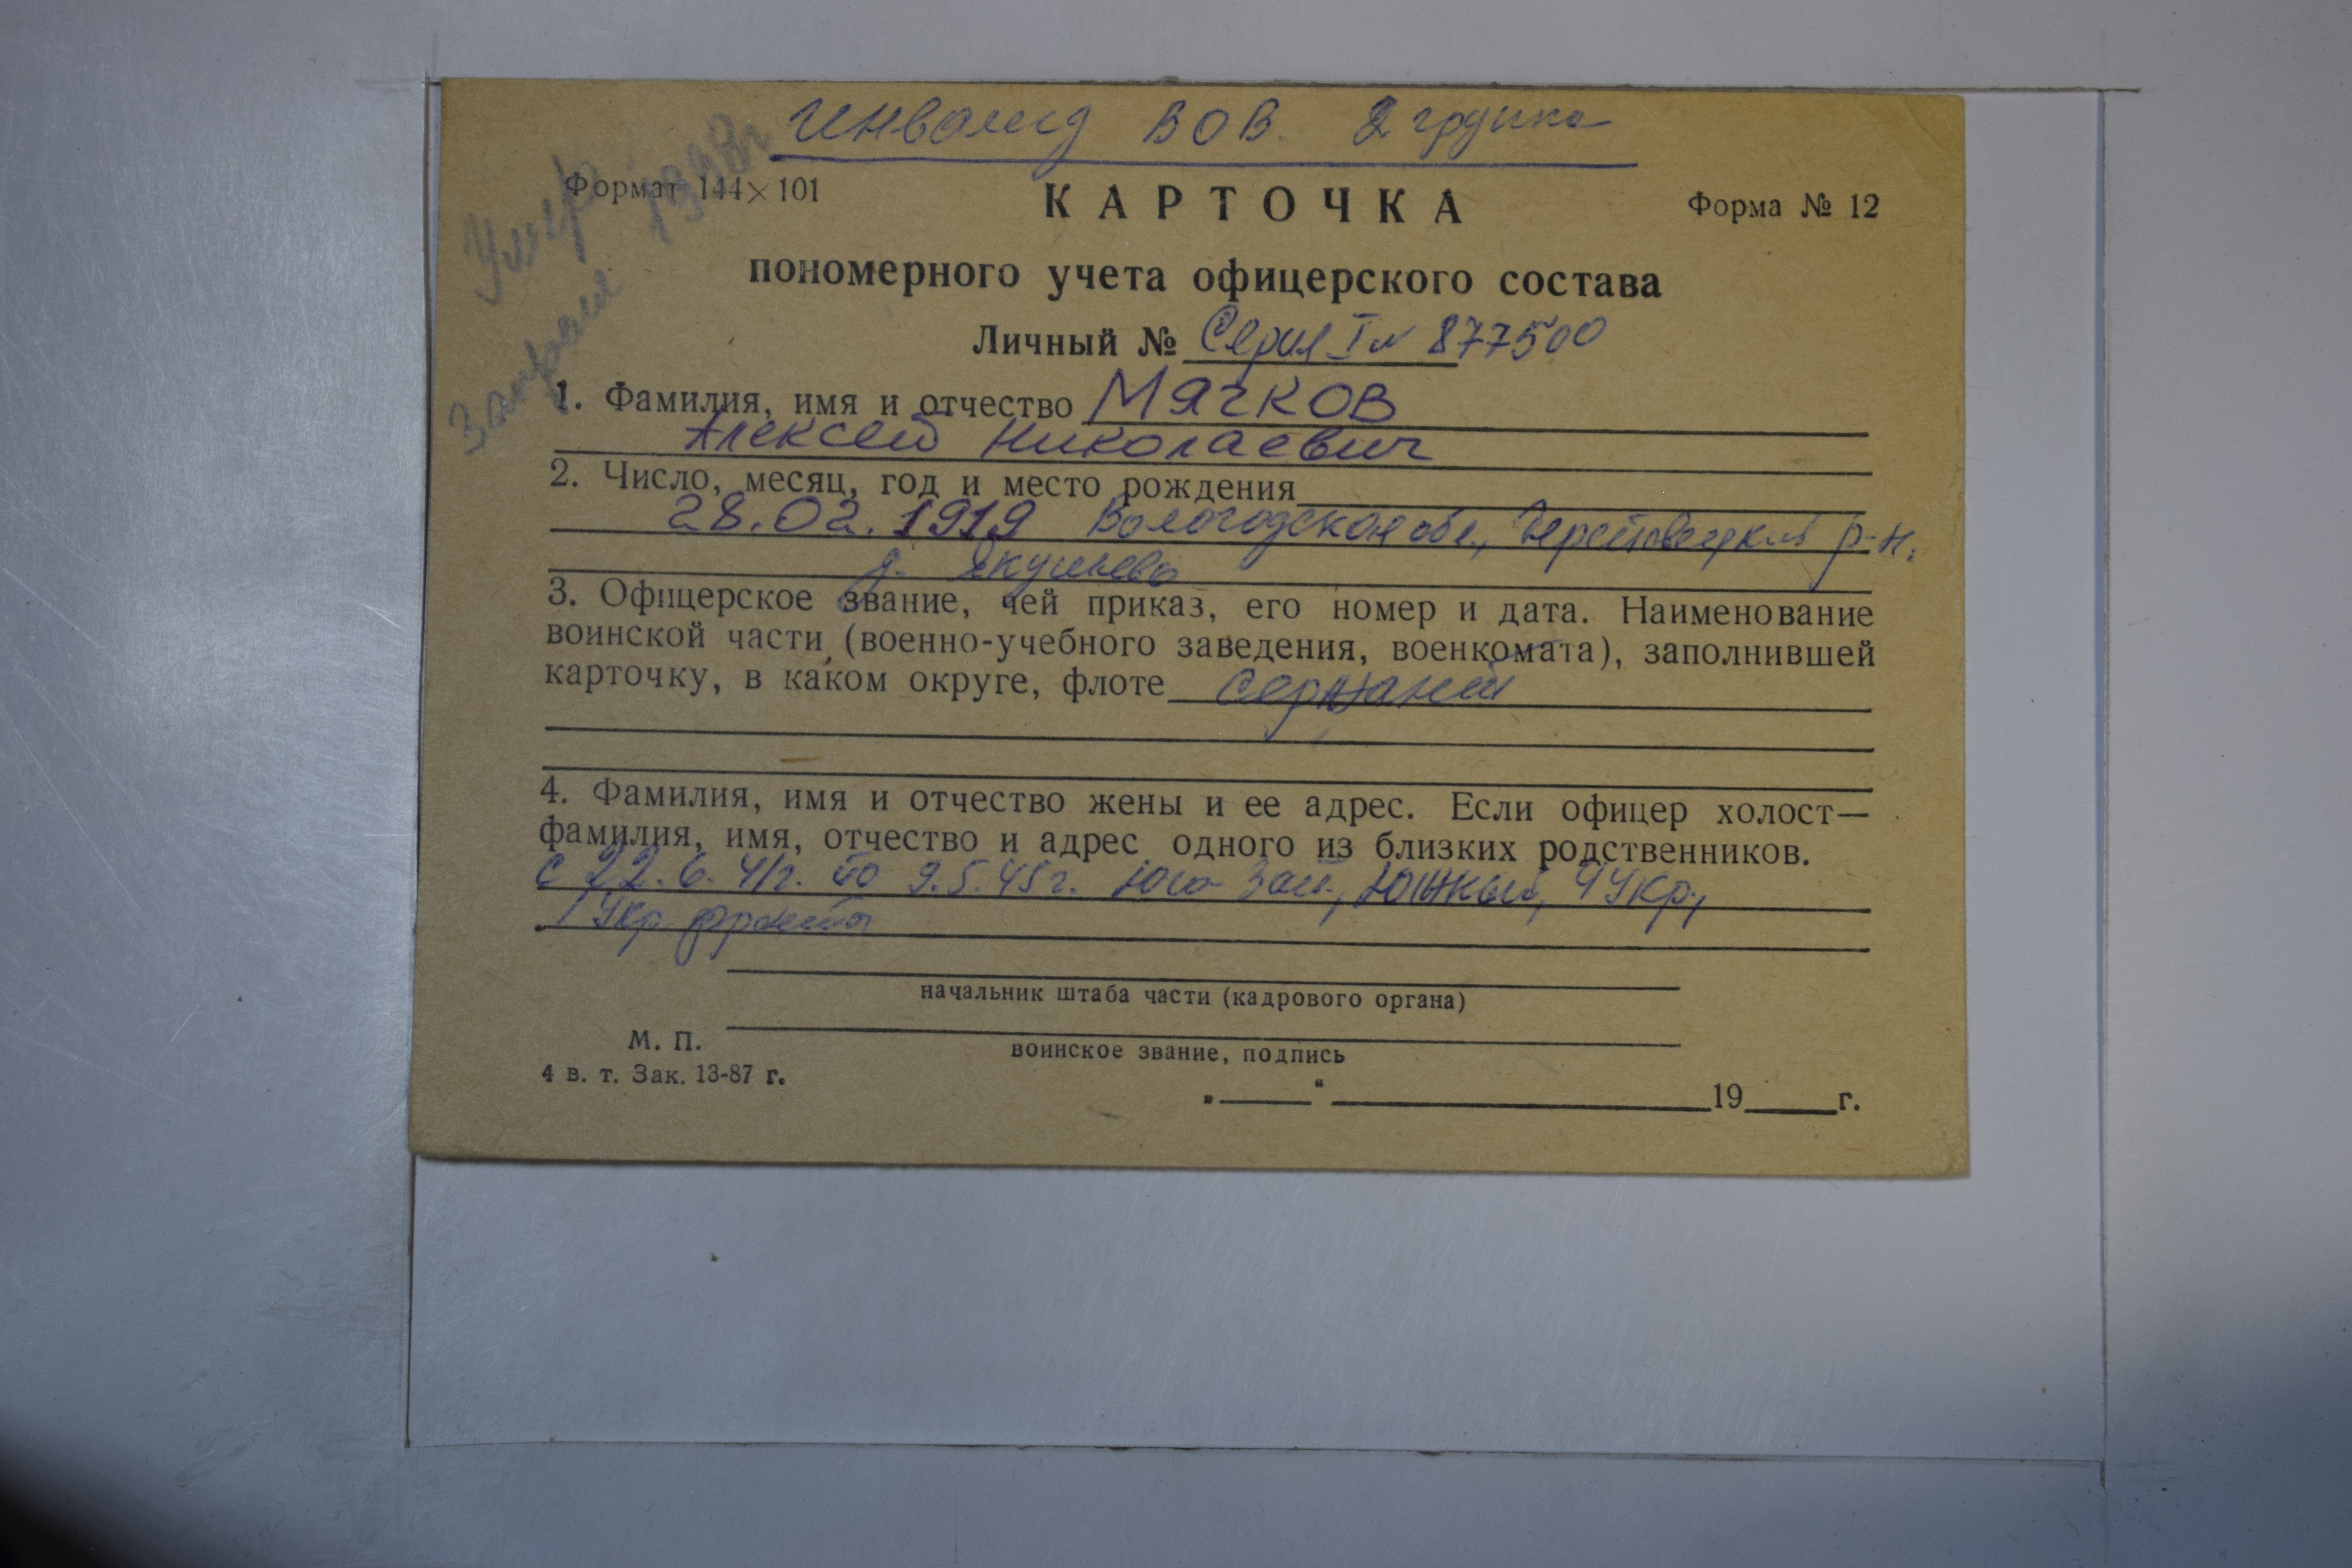 Инвалид ВОВ. 2 группа
Умер 1998г
Формат 144×101
КАРТОЧКА
Форма № 12
пономерного учета офицерского состава
Личный № Серия I № 877500
1. Фамилия, имя и отчество Мячков
Алексей Николаевич
2. Число, месяц, год и место рождения
28.02.1919 Вологодская обл., Череповецкий р-н.
д.
3. Офицерское звание, чей приказ, его номер и дата. Наименование
воинской части (военно-учебного заведения, военкомата), заполнившей
карточку, в каком округе, флоте сержант
4. Фамилия, имя и отчество жены и ее адрес. Если офицер холост—
фамилия, имя, отчество и адрес одного из близких родственников.
с 22.6.41г. по 9.5.45г. Юго-Зап., Южный, 4 Укр.,
1 Укр. фронта
начальник штаба части (кадрового органа)
М. П.
воинское звание, подпись
4 в. т. Зак. 13-87 г.
„ “ 19 г.